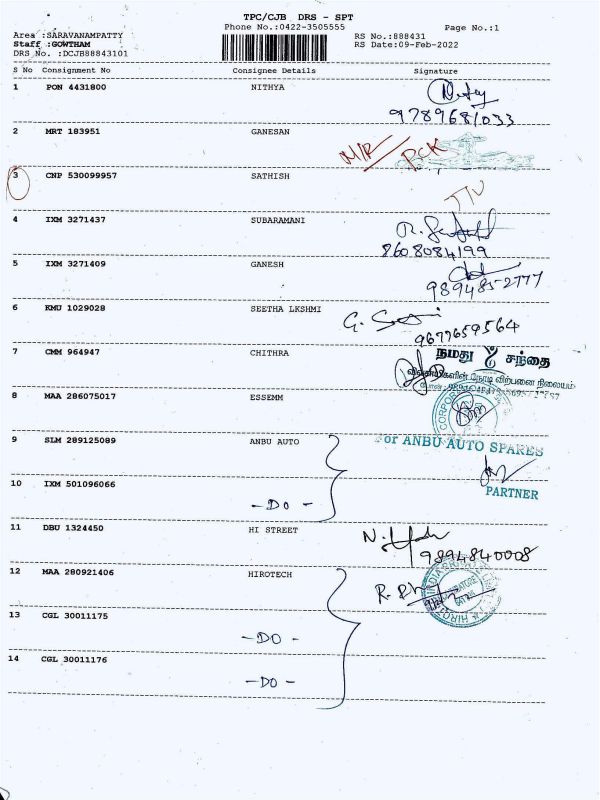 TPC/CJB DRS - SPT
Phone No.:0422-3505555 Page No.:1
Area :SARAVANAMPATTY RS No.:888431
Staff :GOWTHAM RS Date:09-Feb-2022
DRS No. :DCJB88843101
S No Consignment No Consignee Details Signature
1 PON 4431800 NITHYA
9789681033
2 MRT 183951 GANESAN
3 CNP 530099957 SATHISH
4 IXM 3271437 SUBARAMANI
8608084199
5 IXM 3271409 GANESH
9894852777
6 KMU 1029028 SEETHA LKSHMI
9677659564
7 CMM 964947 CHITHRA நமது சந்தை
விற்பனை நிலையம்
8 MAA 286075017 ESSEMM
9 SLM 289125089 ANBU AUTO For ANBU AUTO SPARES
10 IXM 501096066 PARTNER
- DO -
11 DBU 1324450 HI STREET
9894840008
12 MAA 280921406 HIROTECH
13 CGL 30011175
- DO -
14 CGL 30011176
- DO -